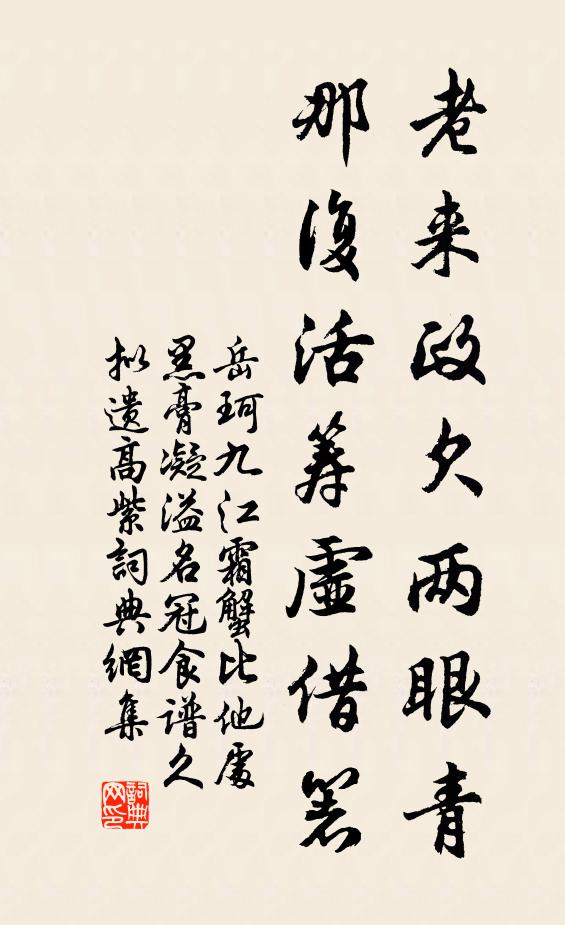 老来政欠两眼青
那復活筹虚借箸
岳珂九江霜蟹比他處
黑膏凝溢名冠食谱久
拟遗高紫詞典網集
詞典网印